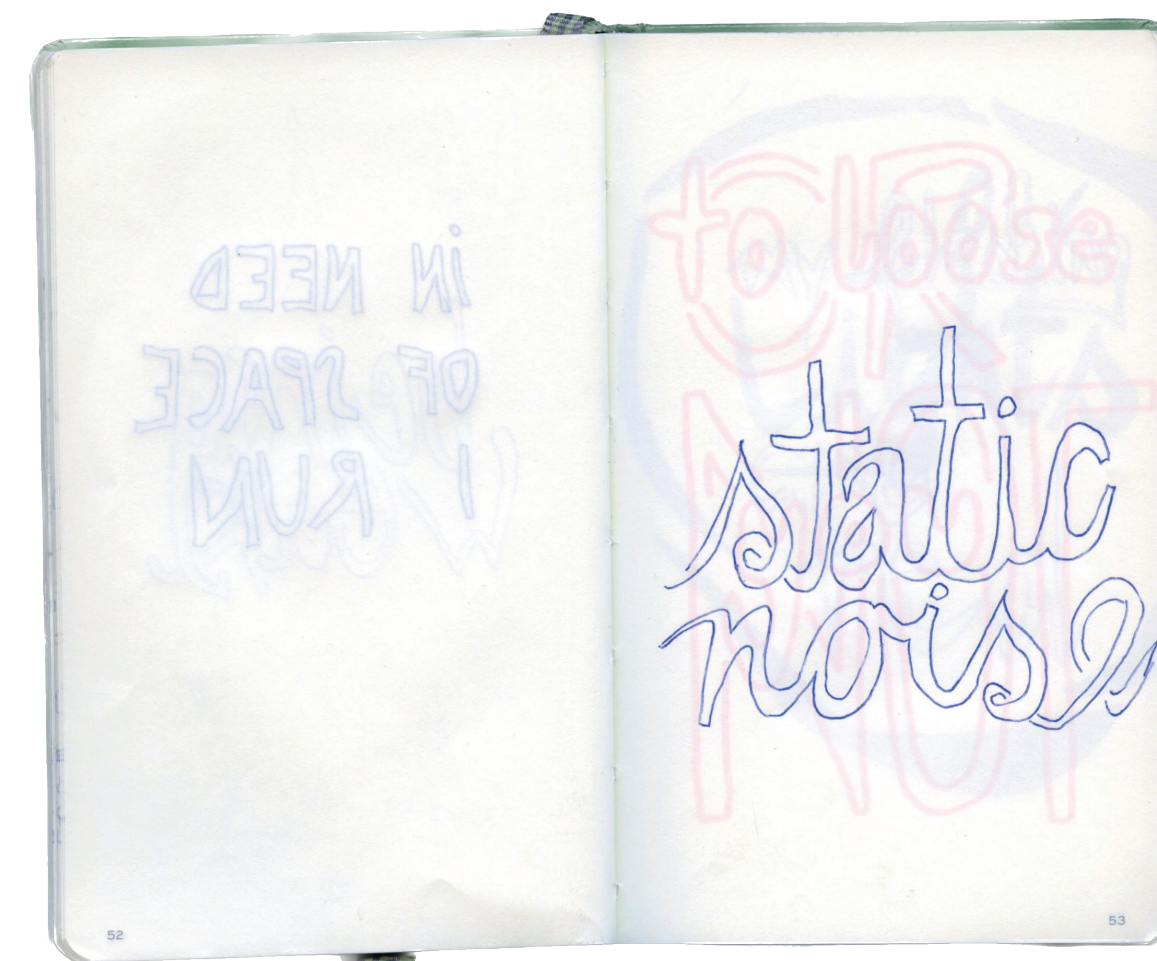 IN NEED
OF SPACE
I RUN
52
to loose
OR
NOT
static
noise
53